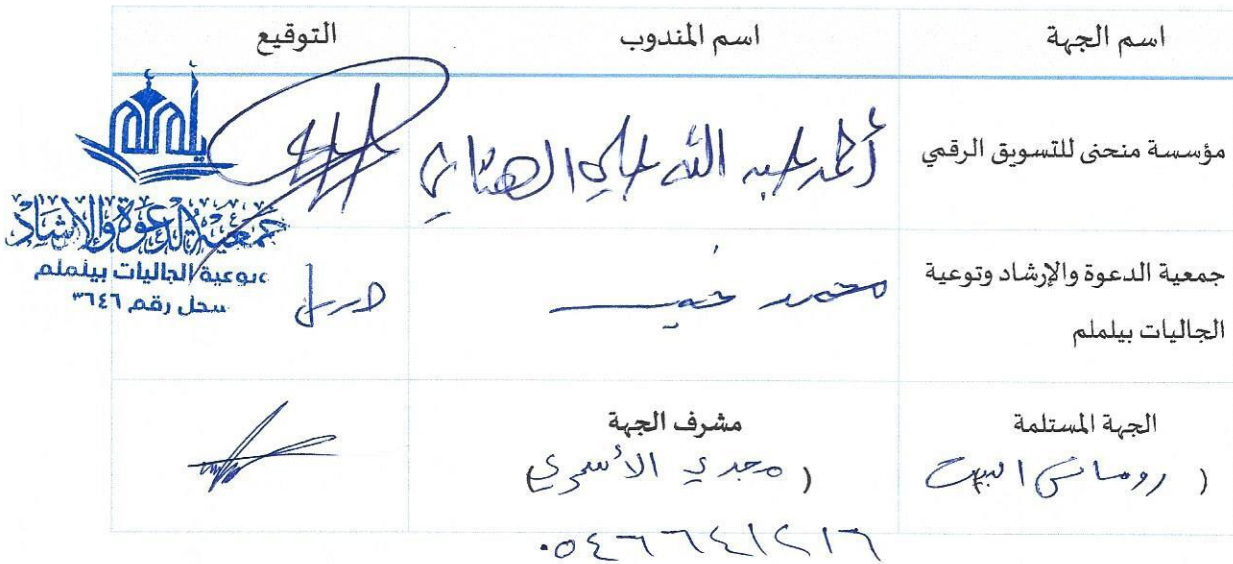 اسم الجهة اسم المندوب التوقيع
مؤسسة منحنى للتسويق الرقمي أحمد عبد الله علي
جمعية الدعوة والإرشاد وتوعية محمد
الجاليات بيلملم
الجهة المستلمة مشرف الجهة
( مجدي الأسمري)
٠٥٤٦٦٤١٢١٦
يلملم
جمعية الدعوة والإرشاد
وتوعية الجاليات بيلملم
سجل رقم ٣٦٤٦